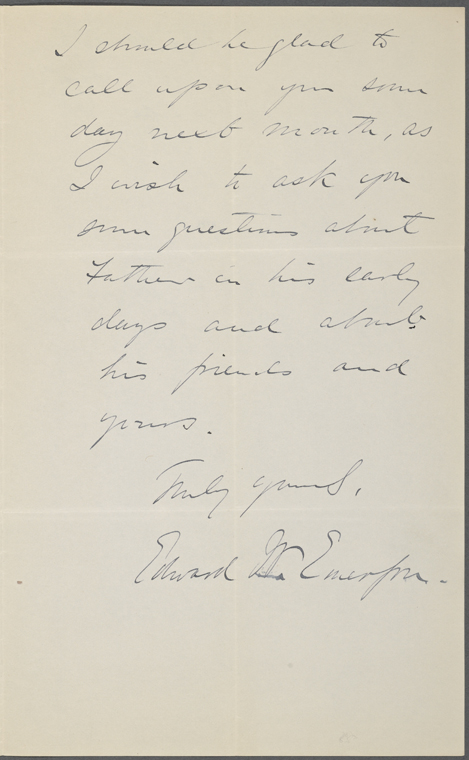 I should be glad to
call upon you some
day next month, as
I wish to ask you
some questions about
Father in his early
days and about
his friends and
yours.
Truly yours,
Edward W. Emerson.